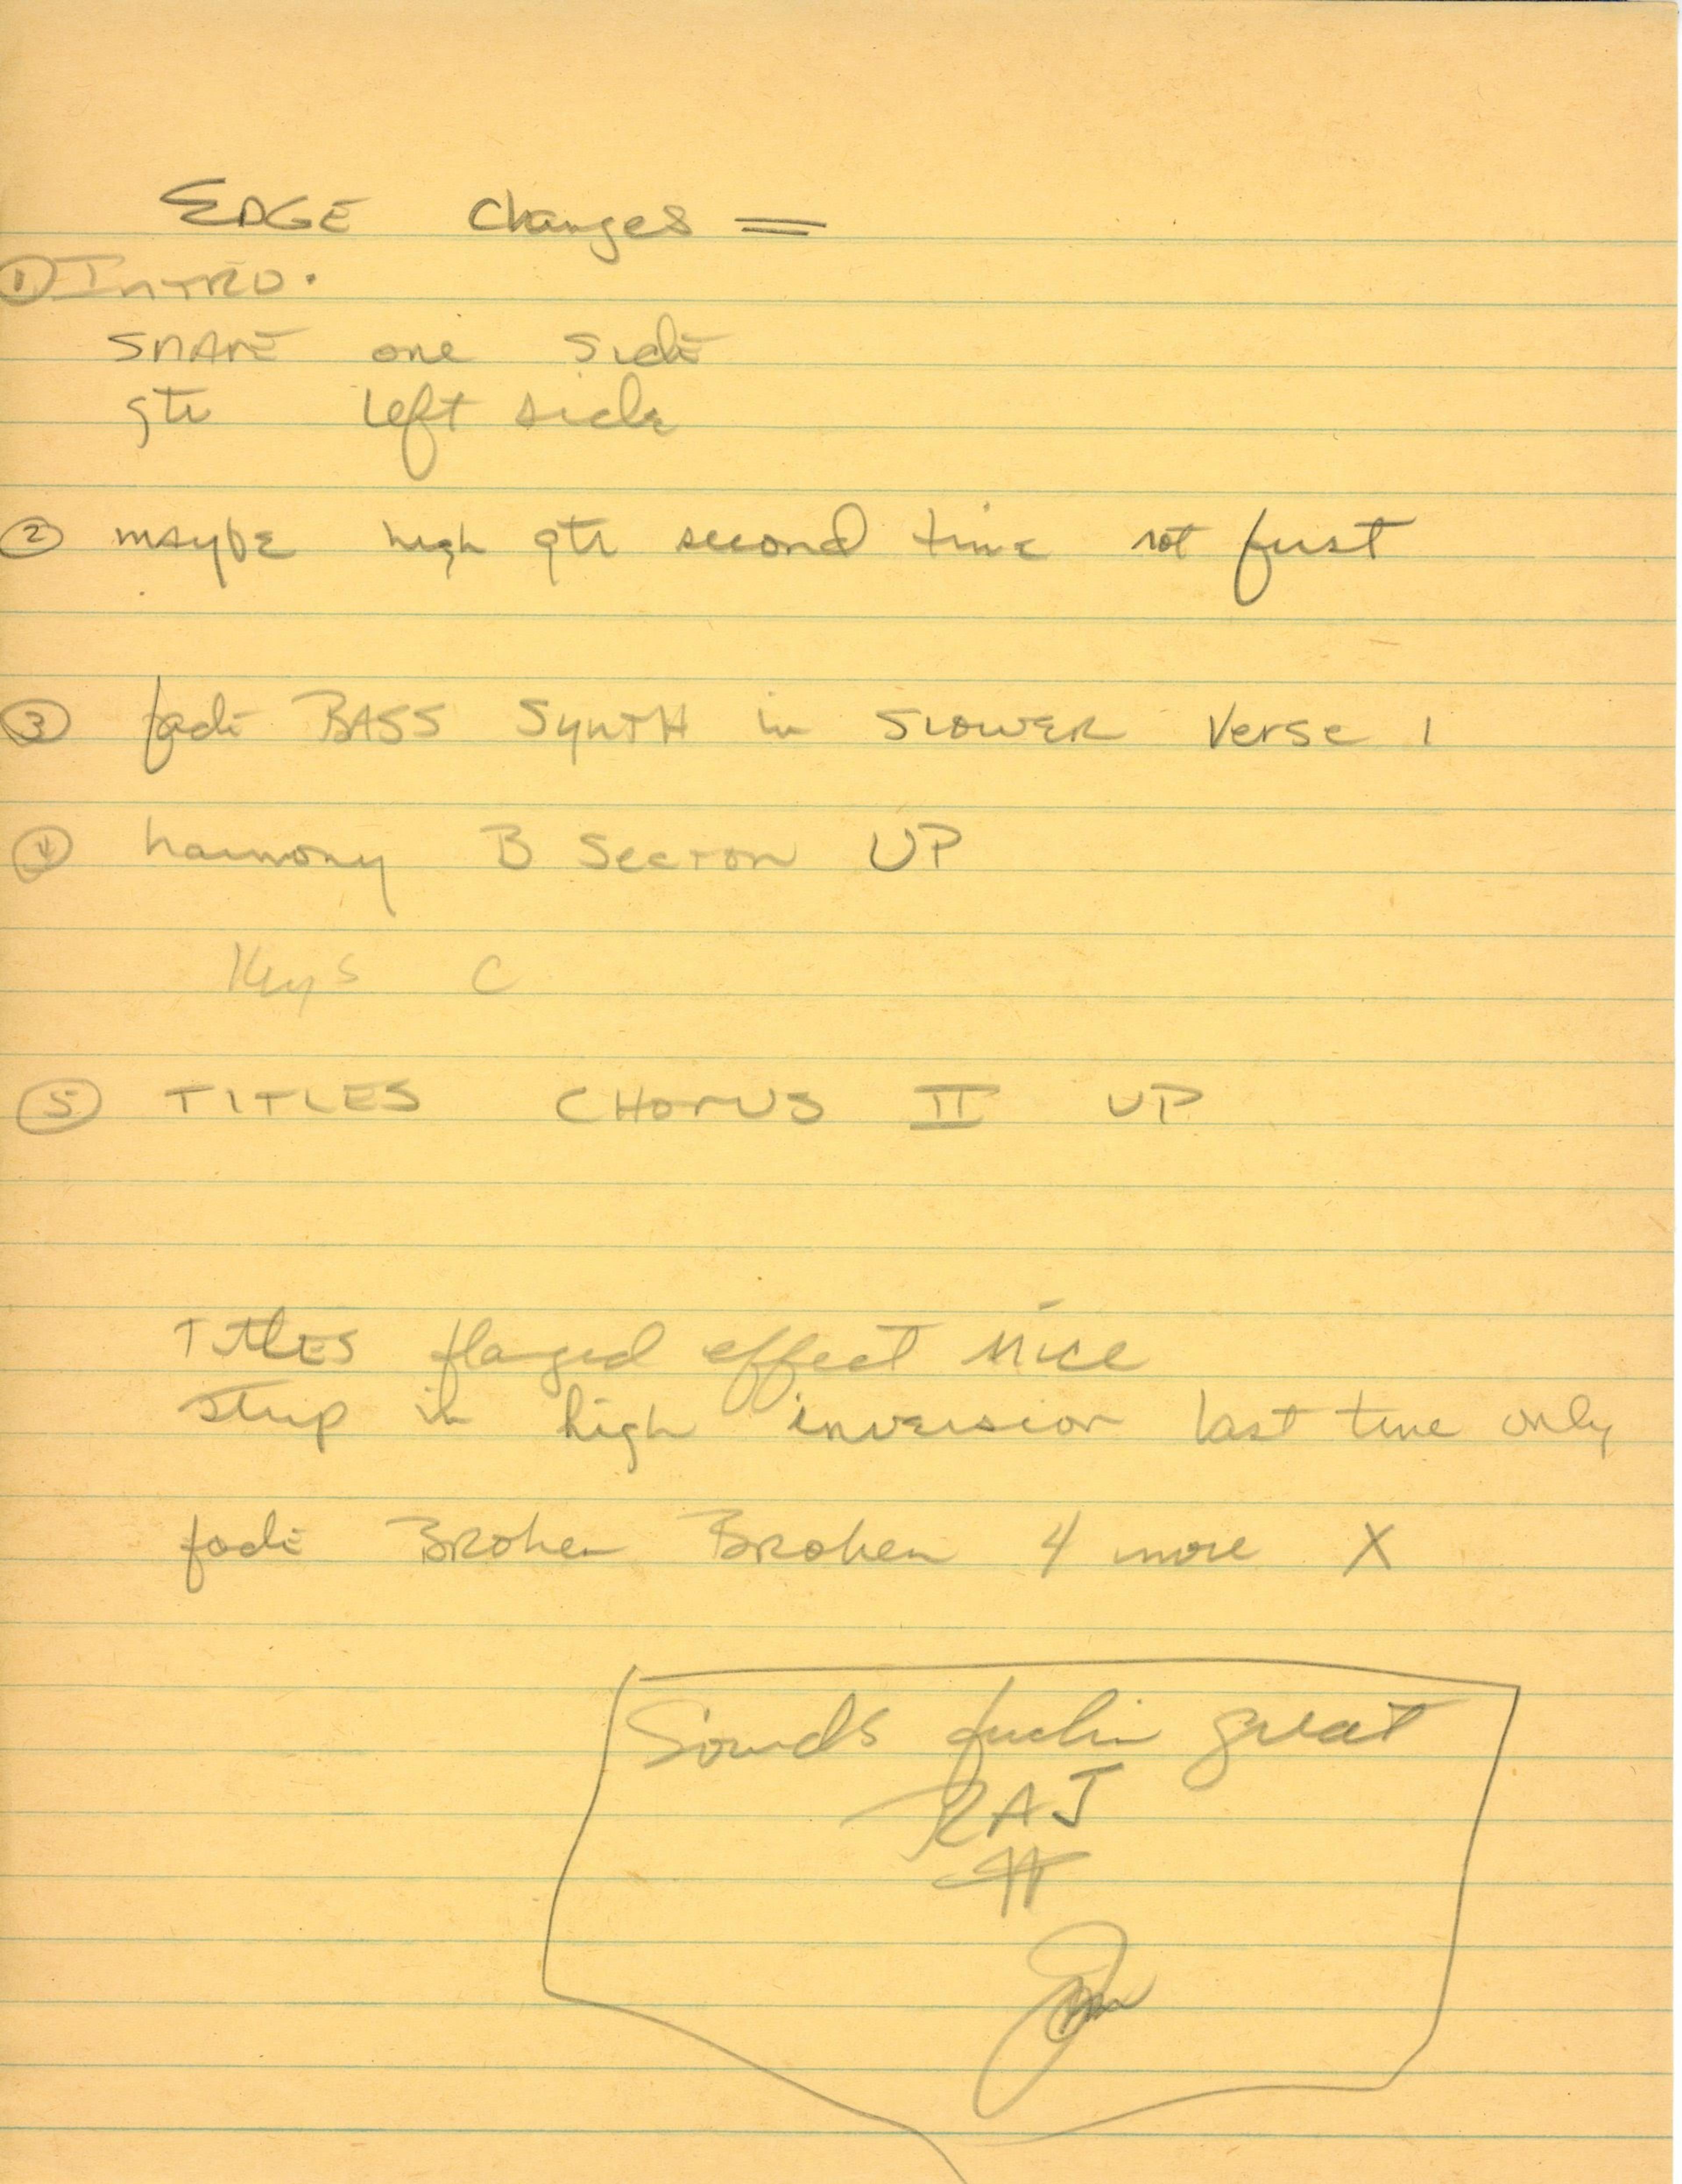 EDGE Changes =
① INTRO.
SNARE one side
gtr left side
② maybe high gtr second time not first
③ fade BASS SYNTH in SLOWER Verse 1
④ harmony B Section UP
Keys C
⑤ TITLES CHORUS II UP
TITLES flanged effect nice
in high inversion last time only
fade Broken Broken 4 more X
Sounds fuckin great
RAJ